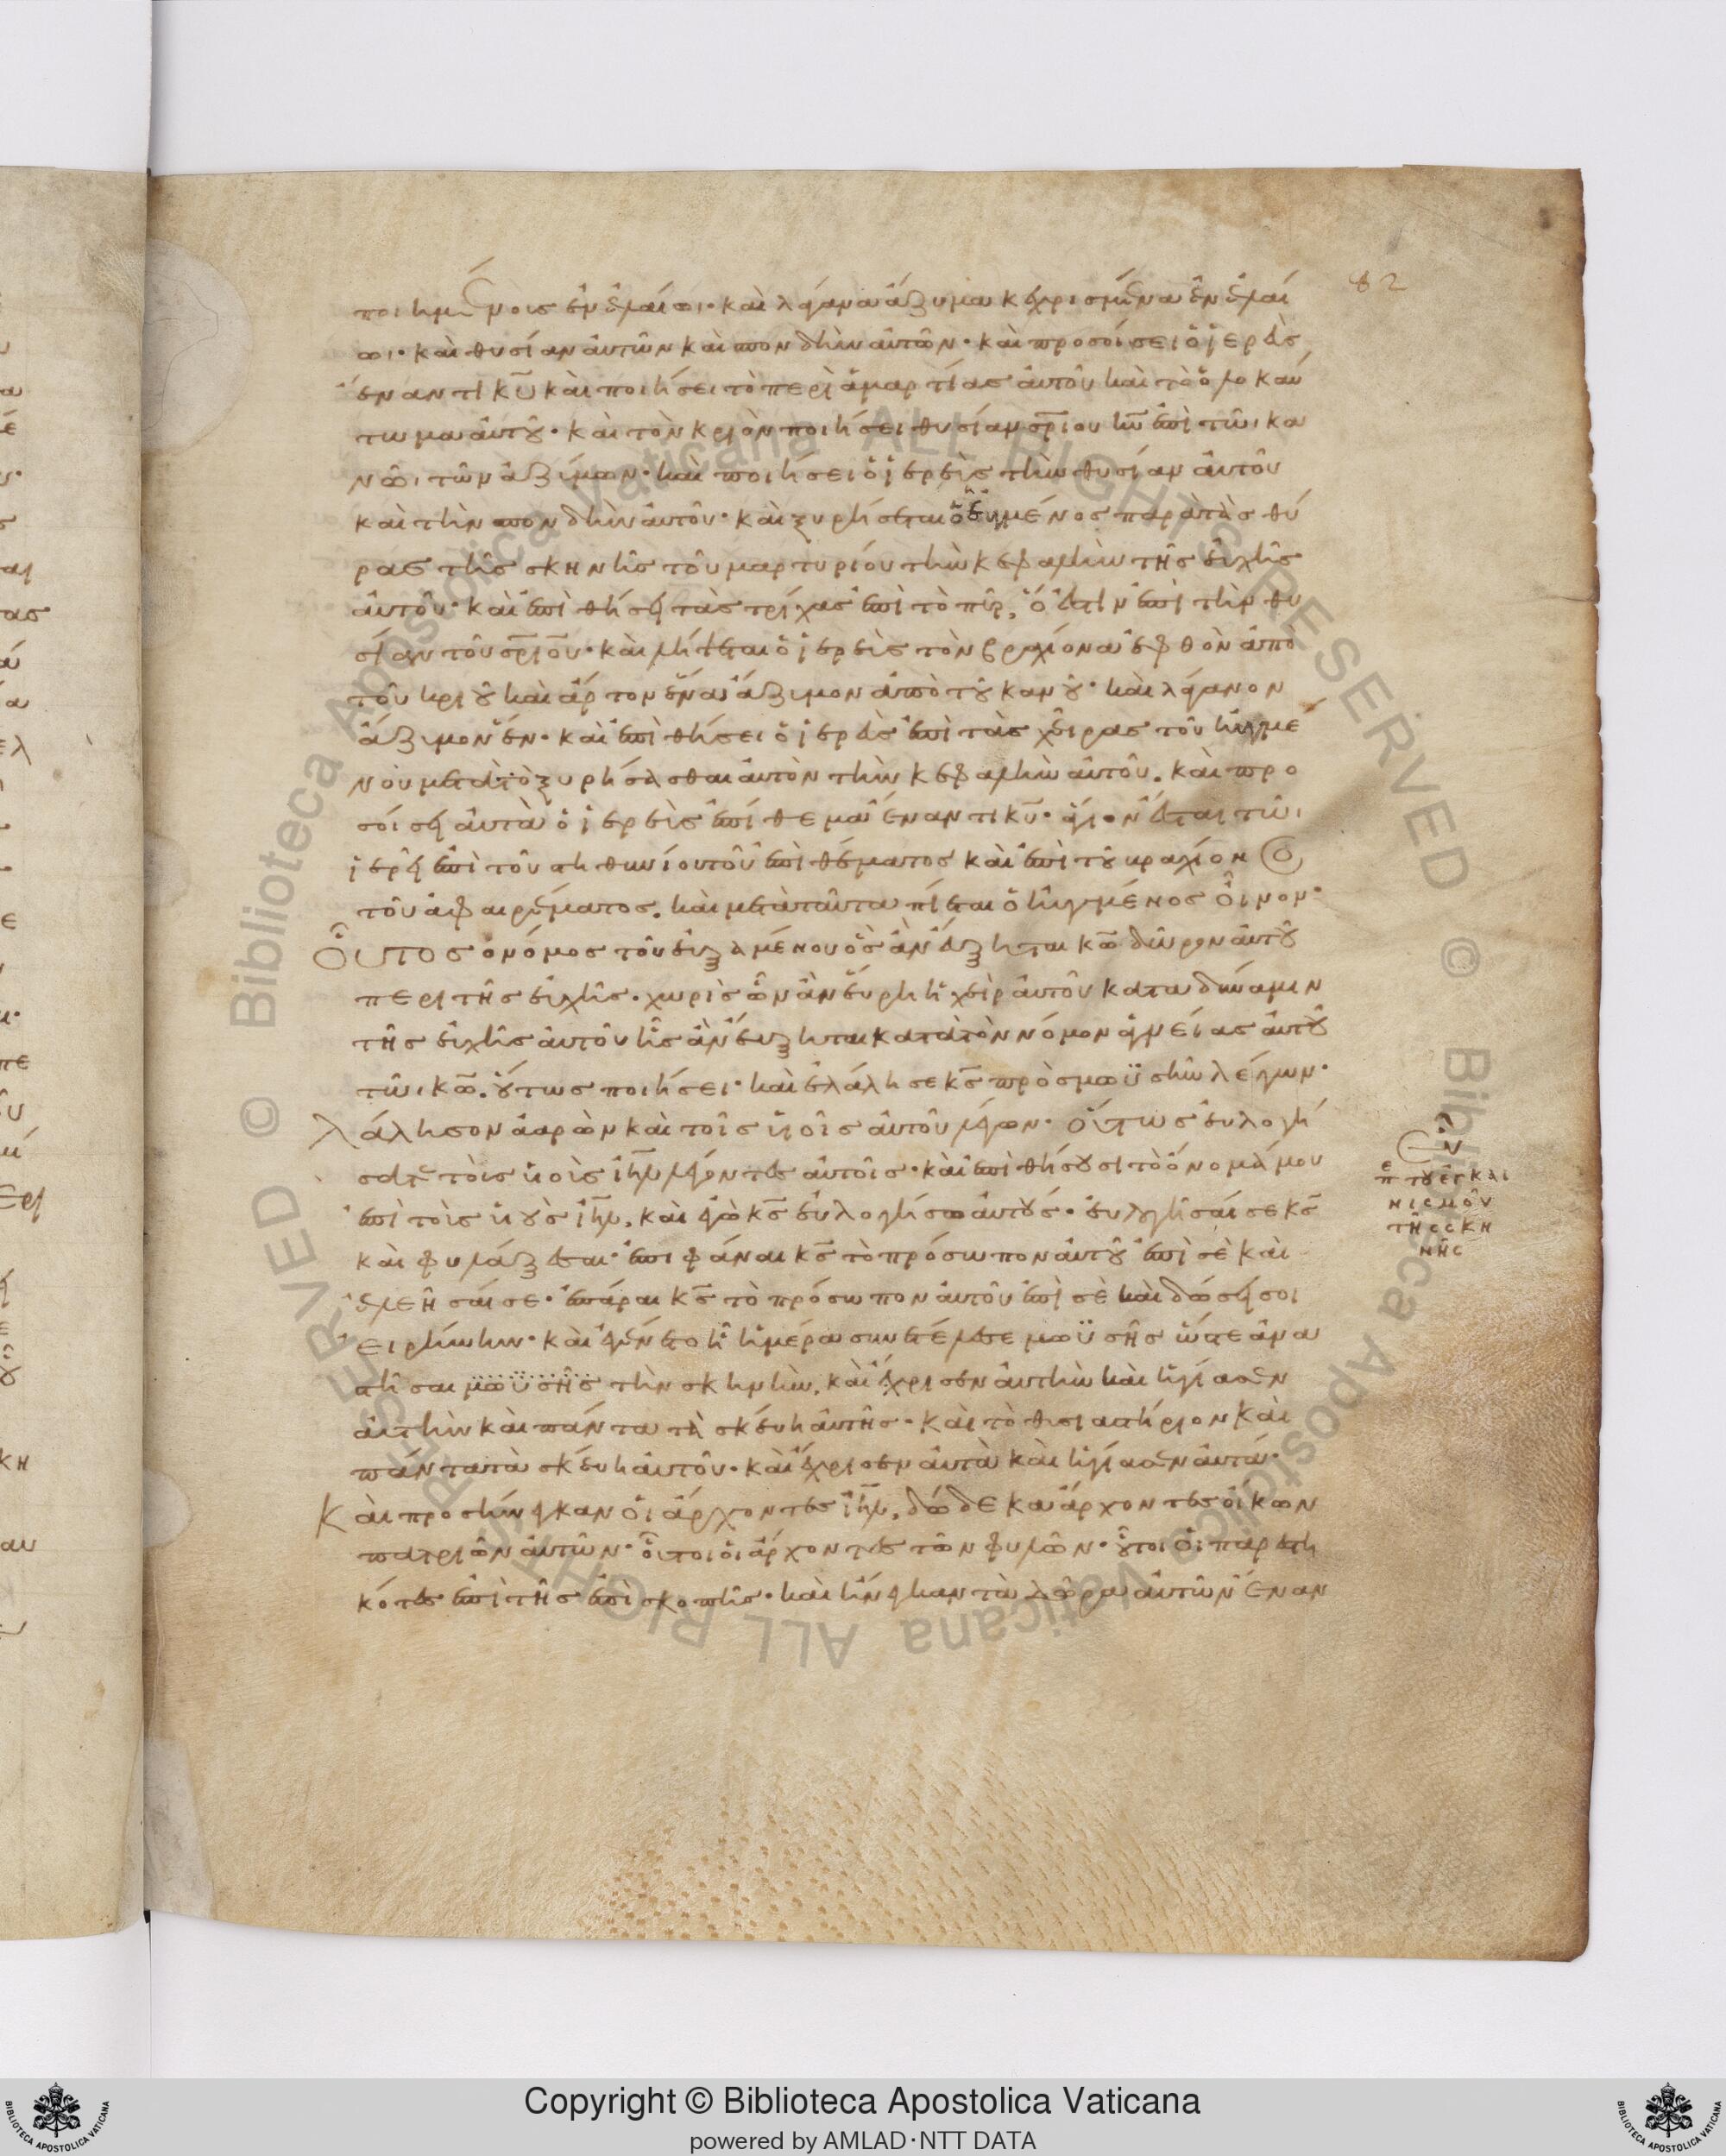 82
ποιημένοις ἐν ἐλαίωι· καὶ λάγανα ἄζυμα κεχρισμένα ἐν ἐλαί
ωι· καὶ θυσίαν ἀυτῶν καὶ σπονδὴν ἀυτῶν· καὶ προσοίσει ὁ ἱερεὺς
ἔναντι κ̅υ̅ καὶ ποιήσει τὸ περὶ ἁμαρτίας ἀυτοῦ καὶ τὸ ὁλοκαύ
τωμα ἀυτοῦ· καὶ τὸν κριὸν ποιήσει θυσίαν σ̅ρ̅ιου κ̅ω̅ ἐπὶ τῶι κα
νῶι τῶν ἀζύμων· καὶ ποιήσει ὁ ἱερεὺς τὴν θυσίαν ἀυτοῦ
καὶ τὴν σπονδὴν ἀυτοῦ· καὶ ξυρήσεται ὁ ηὐγμένος παρὰ τὰς θύ
ρας τῆς σκηνῆς τοῦ μαρτυρίου τὴν κεφαλὴν τῆς ἐυχῆς
ἀυτοῦ· καὶ ἐπιθήσει τὰς τρίχας ἐπὶ τὸ πῦρ, ὅ ἐστιν ἐπὶ τὴν θυ
σίαν τοῦ σ̅ρ̅ι̅ο̅υ· καὶ λήψεται ὁ ἱερεὺς τὸν βραχίονα ἑφθὸν ἀπὸ
τοῦ κριοῦ καὶ ἄρτον ἕνα ἄζυμον ἀπὸ τοῦ κανοῦ· καὶ λάγανον
ἄζυμον ἕν· καὶ ἐπιθήσει ὁ ἱερεὺς ἐπὶ τὰς χεῖρας τοῦ ηὐγμέ
νου μετὰ τὸ ξυρήσασθαι ἀυτὸν τὴν κεφαλὴν ἀυτοῦ. καὶ προ
σοίσει ἀυτὰ ὁ ἱερεὺς ἐπίθεμα ἔναντι κ̅υ̅· ἅγιον ἔσται τῶι
ἱερεῖ ἐπὶ τοῦ στηθυνίου τοῦ ἐπιθέματος καὶ ἐπὶ τοῦ βραχίονος
τοῦ ἀφαιρέματος. καὶ μετὰ ταῦτα πίεται ὁ ηὐγμένος οἶνον·
Οὗτος ὁ νόμος τοῦ ἐυξαμένου ὃς ἂν ἐύξηται κ̅ω̅ δῶρον ἀυτοῦ
περὶ τῆς ἐυχῆς. χωρὶς ὧν ἂν ἕυρη ἡ χεὶρ ἀυτοῦ κατὰ δύναμιν
τῆς ἐυχῆς ἀυτοῦ ἧς ἂν ἐύξηται κατὰ τὸν νόμον ἁγνείας ἀυτοῦ
τῶι κ̅ω̅. οὕτως ποιήσει· καὶ ἐλάλησε κ̅ς̅ πρὸς μωϋσὴν λέγων·
Λάλησον ἀαρὼν καὶ τοῖς υἱοῖς ἀυτοῦ λέγων· οὕτως ἐυλογή
σατε τοῖς υἱοῖς ι̅η̅λ̅ λέγοντες ἀυτοῖς· καὶ ἐπιθήσουσι τὸ ὄνομά μου
ἐπὶ τοὺς υἱοὺς ι̅η̅λ̅, καὶ ἐγὼ κ̅ς̅ ἐυλογήσω ἀυτούς· ἐυλογήσαί σε κ̅ς̅
καὶ φυλάξαι σε· ἐπιφάναι κ̅ς̅ τὸ πρόσωπον ἀυτοῦ ἐπὶ σὲ καὶ
ἐλεῆσαί σε· ἐπάραι κ̅ς̅ τὸ πρόσωπον ἀυτοῦ ἐπὶ σὲ καὶ δώσει σοι
εἰρήνην· καὶ ἐγένετο ἧ ἡμέρα συνετέλεσε μωϋσῆς ὥστε ἀνα
στῆσαι μωϋσῆς τὴν σκηνὴν, καὶ ἔχρισεν ἀυτὴν καὶ ἡγίασεν
ἀυτὴν καὶ πάντα τὰ σκέυη ἀυτῆς· καὶ τὸ θυσιαστήριον καὶ
πάντα τὰ σκέυη ἀυτοῦ· καὶ ἔχρισεν ἀυτὰ καὶ ἡγίασεν ἀυτά·
Καὶ προσήνεγκαν οἱ ἄρχοντες ι̅η̅λ̅, δώδεκα ἄρχοντες οἴκων
πατριῶν ἀυτῶν· οὗτοι οἱ ἄρχοντες τῶν φυλῶν· οὗτοι οἱ παρεστη
κότες ἐπὶ τῆς ἐπισκοπῆς· καὶ ἤνεγκαν τὰ δῶρα ἀυτῶν ἔναν
π̅ε̅ τοῦ ἐγκαι
νισμοῦ
τῆς σκη
νῆς